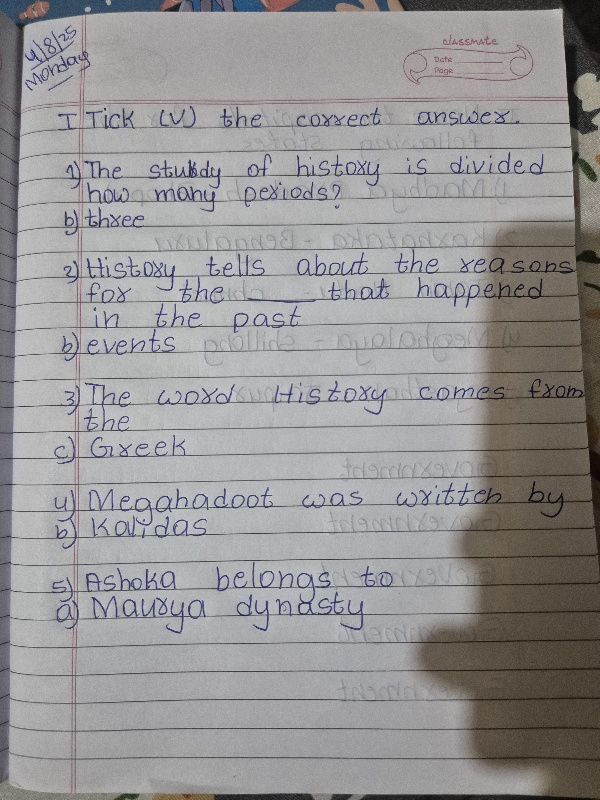 4/8/25
Monday
classmate
Date
Page
I Tick (√) the correct answer.
1) The study of history is divided
how many periods?
b) three
2) History tells about the reasons
for the ____ that happened
in the past
b) events
3) The word History comes from
the
c) Greek
4) Megahadoot was written by
b) Kalidas
5) Ashoka belongs to
a) Maurya dynasty